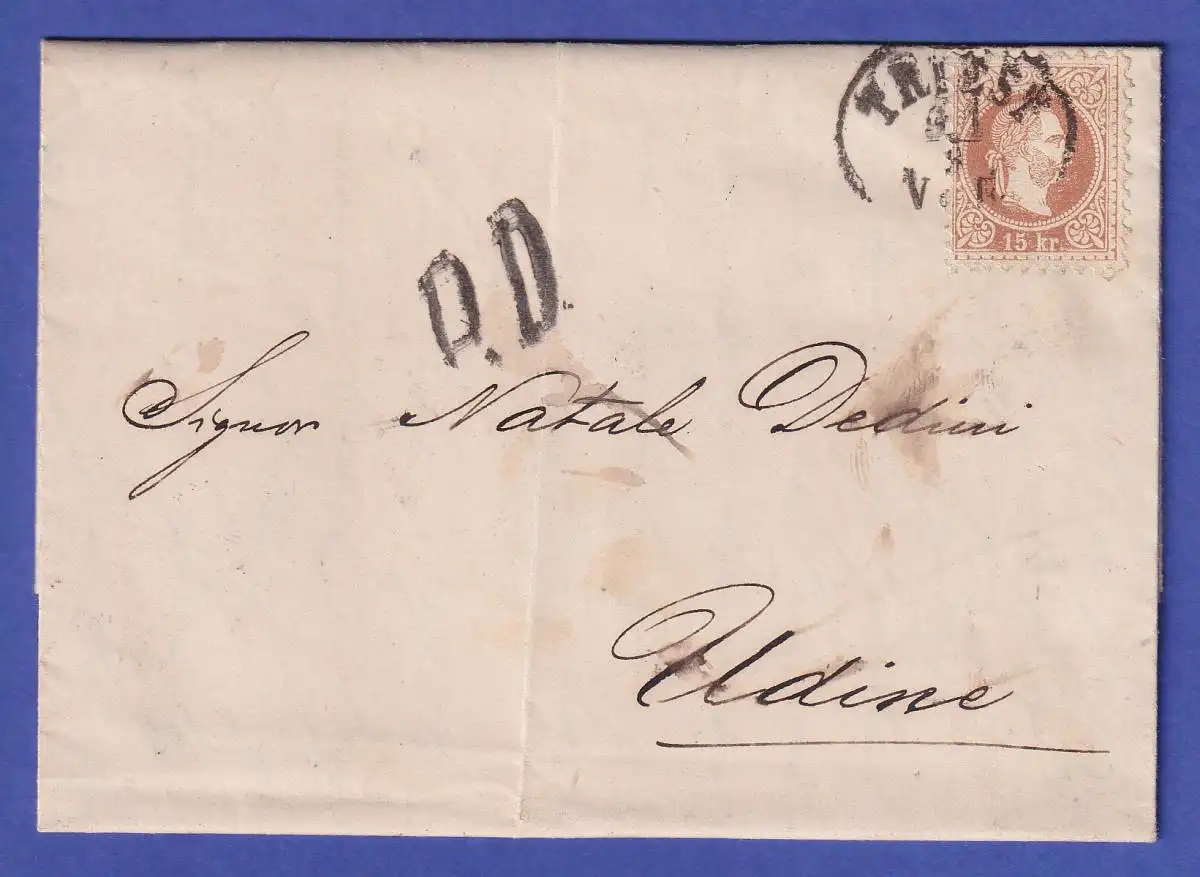 TRIEST
15 kr.
P.D.
Signor Natale Dedini
Udine